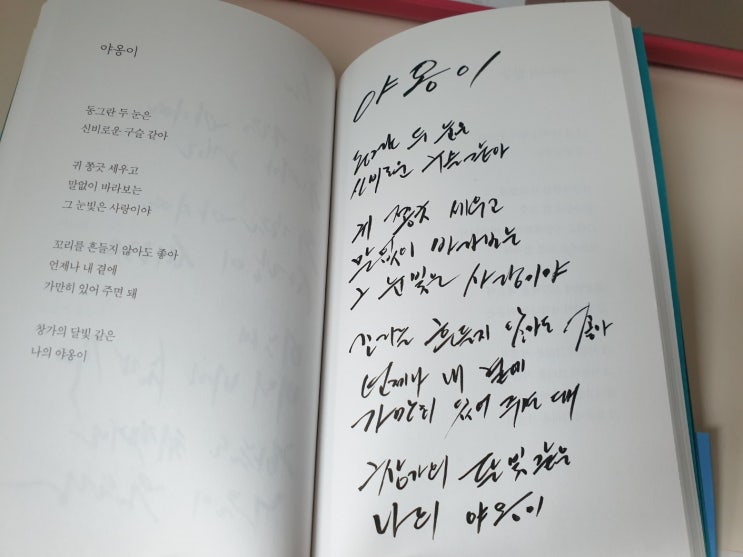 야옹이
동그란 두 눈은
신비로운 구슬 같아
귀 쫑긋 세우고
말없이 바라보는
그 눈빛은 사랑이야
꼬리를 흔들지 않아도 좋아
언제나 내 곁에
가만히 있어 주면 돼
창가의 달빛 같은
나의 야옹이
야옹이
동그란 두 눈은
신비로운 구슬 같아
귀 쫑긋 세우고
말없이 바라보는
그 눈빛은 사랑이야
꼬리를 흔들지 않아도 좋아
언제나 내 곁에
가만히 있어 주면 돼
창가의 달빛 같은
나의 야옹이